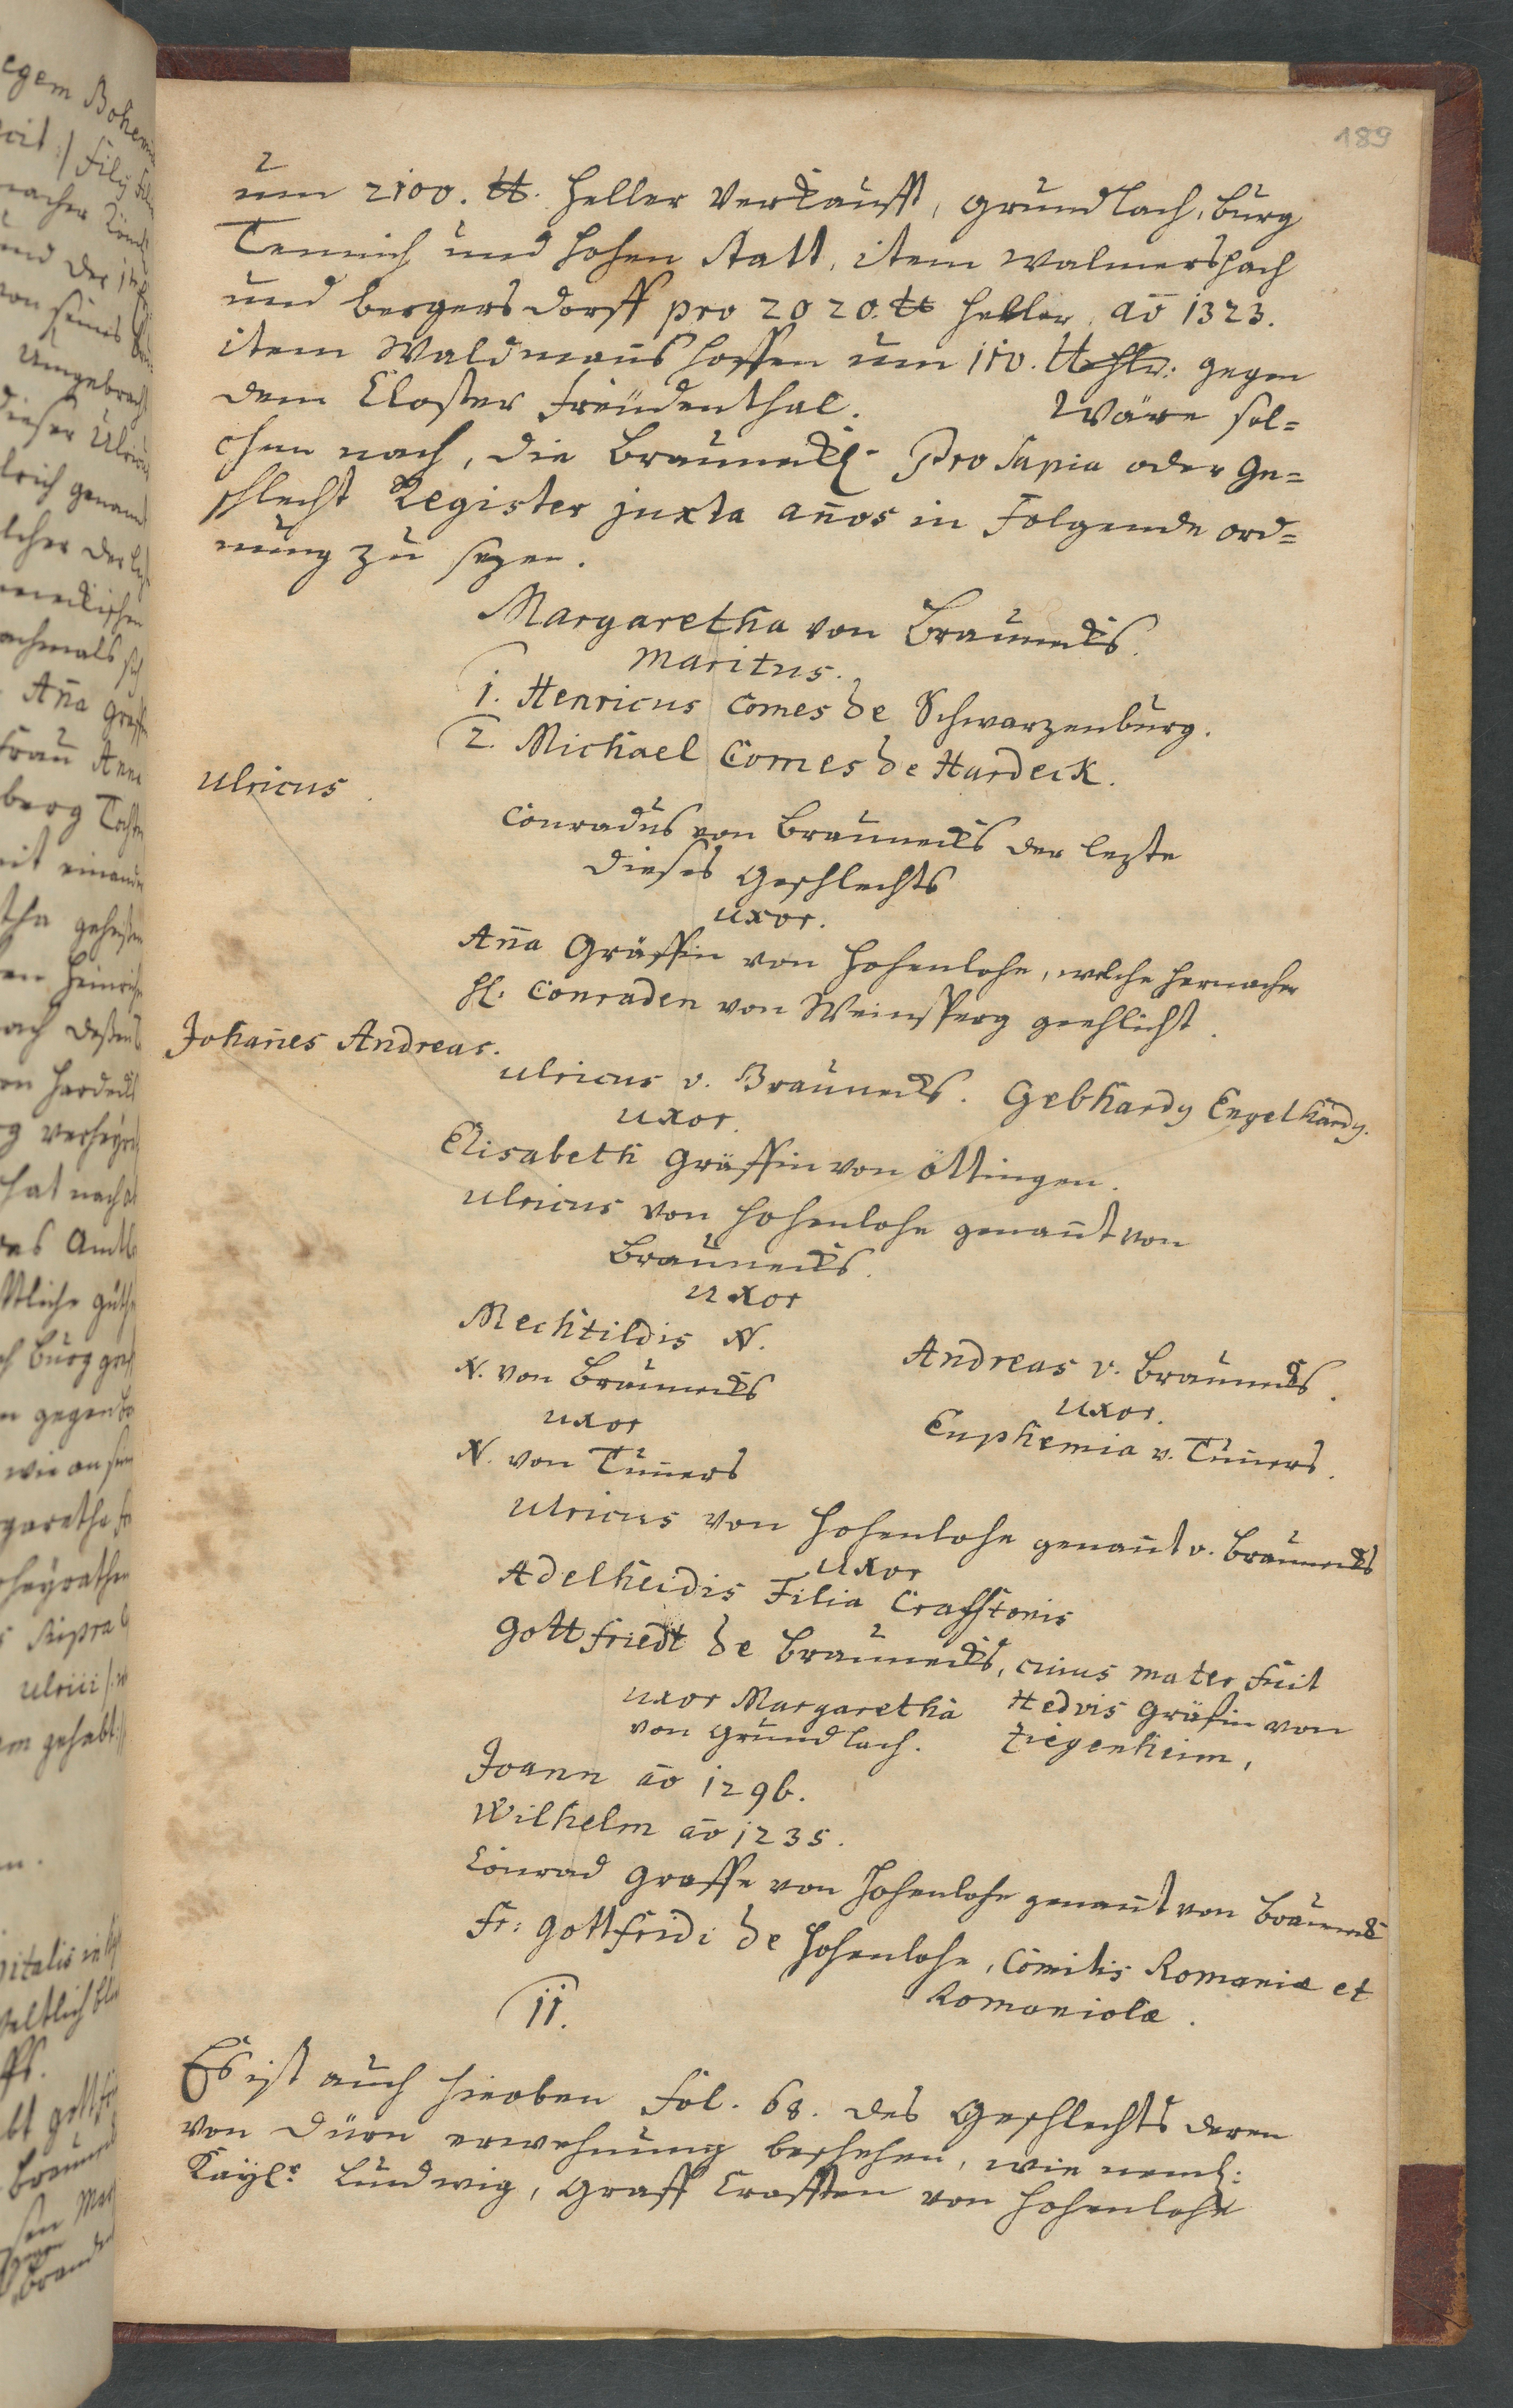 189
um 2100. ℔. Heller verkaufft, Grundlach, Burg
Tennich und Hohen statt, item Walmerspach
und bergersdorff pro 2020. ℔ Heller, aō 1323.
item Waldman̄shoffen um 150. ℔ hlr: gegen
dem Closter Freüdenthal. Wäre sol=
chem nach, die Brauneckl. Prosapia oder Ge=
schlecht Register juxta an̄os in Folgende ord=
nung zu sezen.
Margaretha von Brauneckh.
maritus.
1. Henricus Comes de Schwarzenburg.
2. Michael Comes de Hardeck.
Ulricus.
Conradus von Brauneckh der lezte
dieses Geschlechts
uxor.
An̄a Gräffin von Hohenlohe, welche hernacher
H: Conraden von Weinsperg geehlicht.
Johan̄es Andreas.
Ulricus v. Brauneckh. Gebhardg Engelhardg.
uxor.
Elisabeth Gräffin von Öttingen.
Ulricus von Hohenlohe genan̄t von
Brauneckh.
uxor
Mechtildis N.
N. von Brauneckh
uxor
N. von Tūvers
Andreas v. Brauneckh.
uxor.
Euphemia v. Tūvers.
Ulricus von Hohenlohe genan̄t v. Brauneckh
uxor
Adelheidis Filia Crafftonis
Gottfriedt de Brauneckh, cuius mater fuit
uxor Margaretha Hedvis Gräfin von
von Grundlach. Ziegenheim,
Joann aō 1296.
Wilhelm aō 1235.
Conrad Graffe von Hohenlohe genan̄t von Braunek
Fr: Gottfridi de Hohenlohe, Comitis Romaniæ et
Romaniolæ.
11.
Es ist auch hieoben Fol. 68. des Geschlechts deren
von Dürn erwehnung beschehen, wie neml:
Kayßr Ludwig, Graff Crafften von Hohenlohe